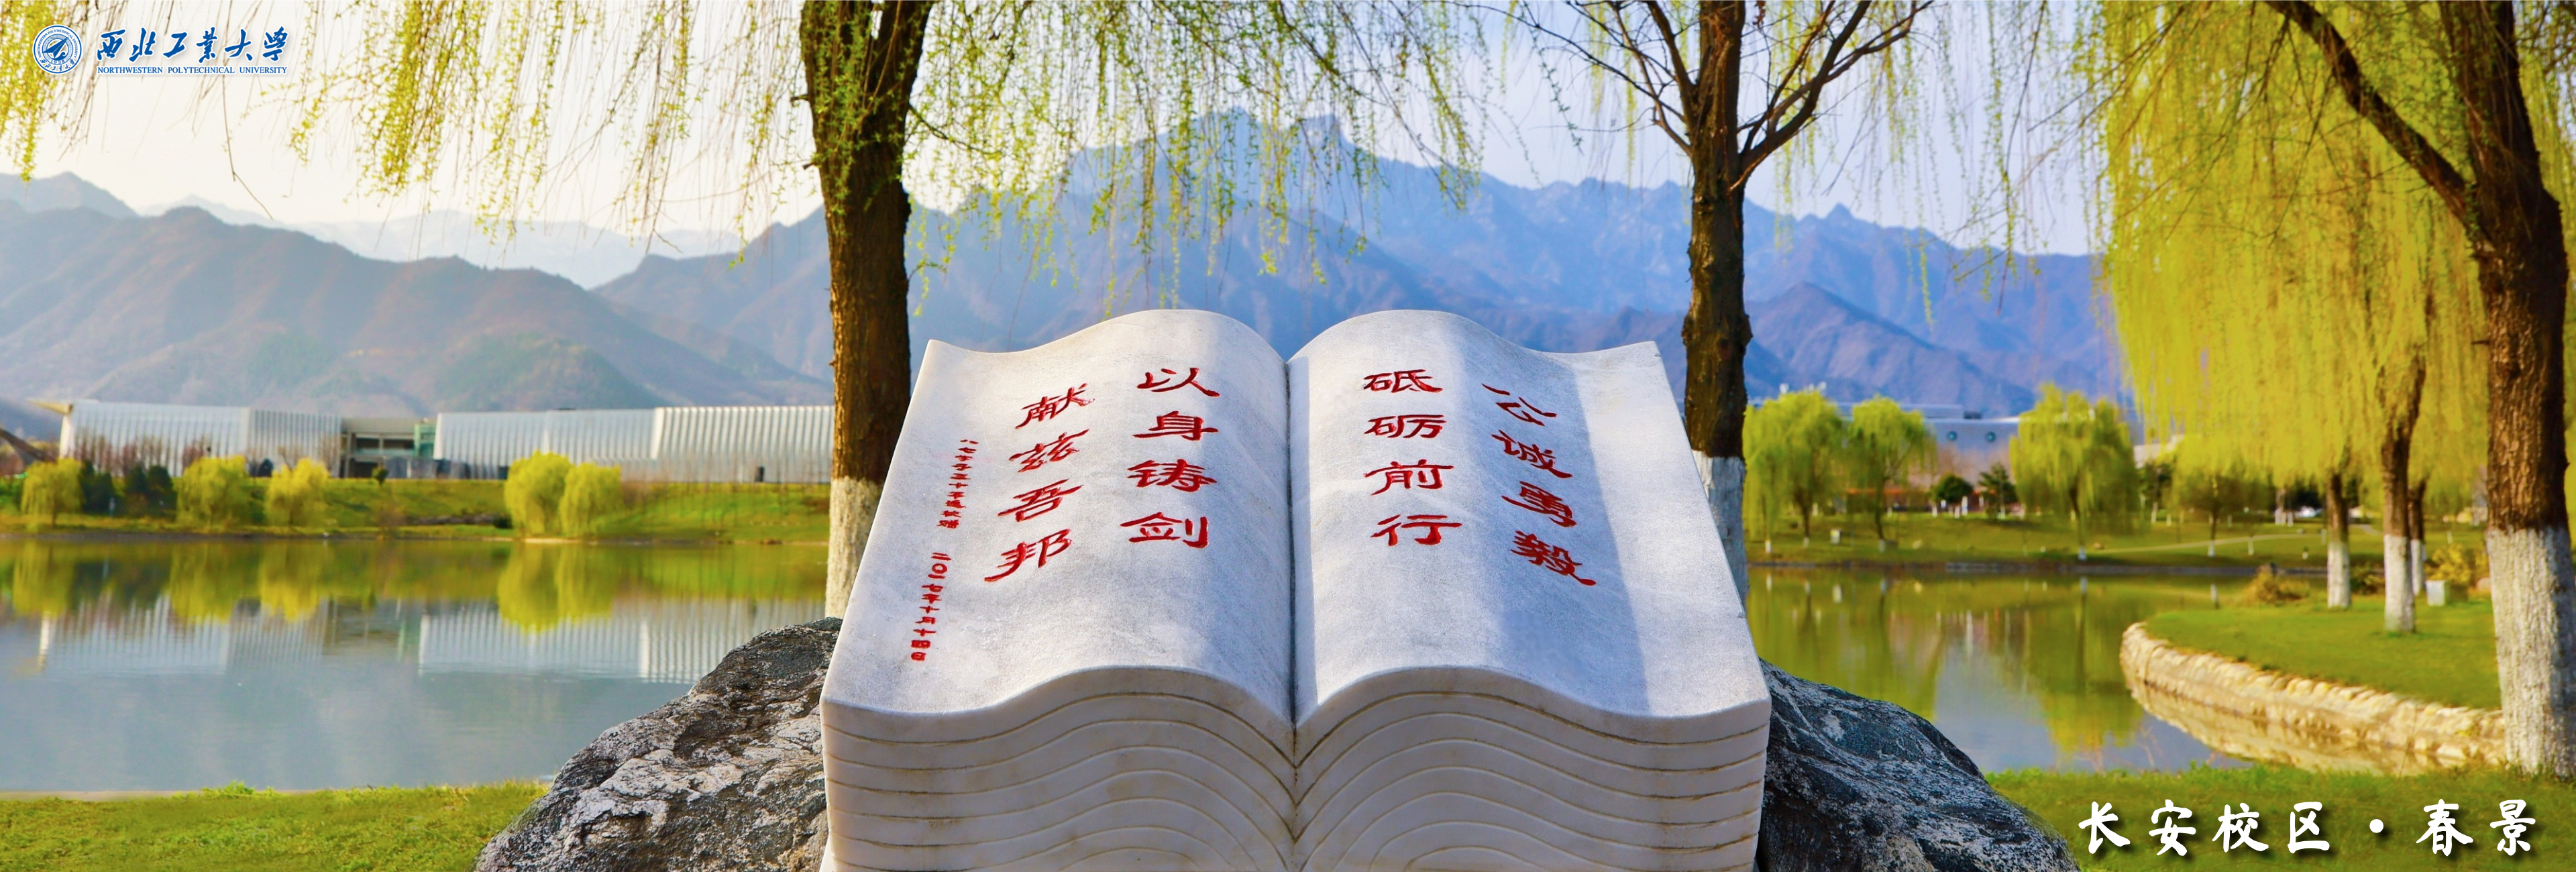 西北工业大学
NORTHWESTERN POLYTECHNICAL UNIVERSITY
公诚勇毅
砥砺前行
以身铸剑
献兹吾邦
二〇一七年十月十四日
长安校区·春景